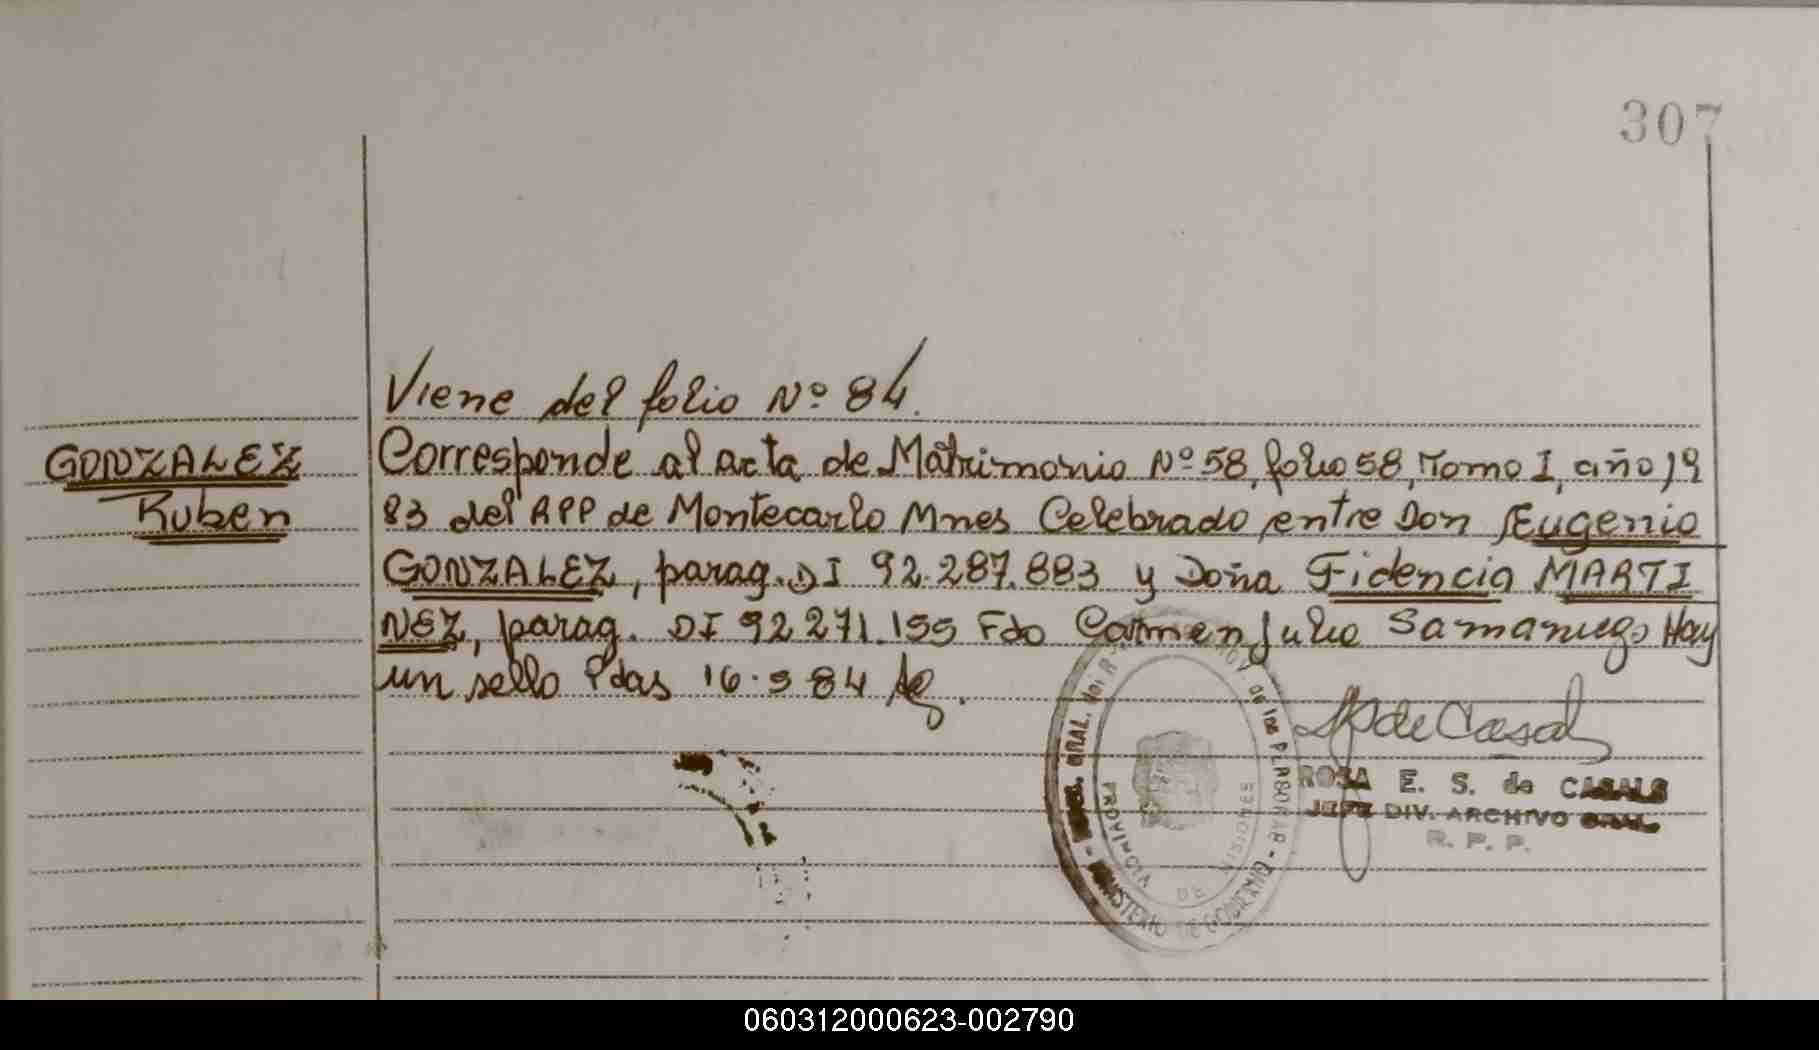 307
Viene del folio Nº 84.
GONZALEZ
Ruben
Corresponde al acta de Matrimonio Nº 58, folio 58, Tomo I, año 19
83 del RPP de Montecarlo Mnes Celebrado entre Don Eugenio
GONZALEZ, parag. DI 92.287.883 y Doña Fidencia MARTI
NEZ, parag. DI 92 271.155 Fdo Carmen Julio Samaniego Hay
un sello Pdas 16.9 84
ROSA E. S. de CASALS
JEFE DIV. ARCHIVO GRAL.
R. P. P.
GRAL.
DE LAS PERSONAS
MINISTERIO DE GOBIERNO
PROVINCIA DE MISIONES
060312000623-002790